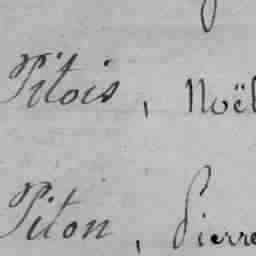 Pitois, Noël
Piton, Pierre